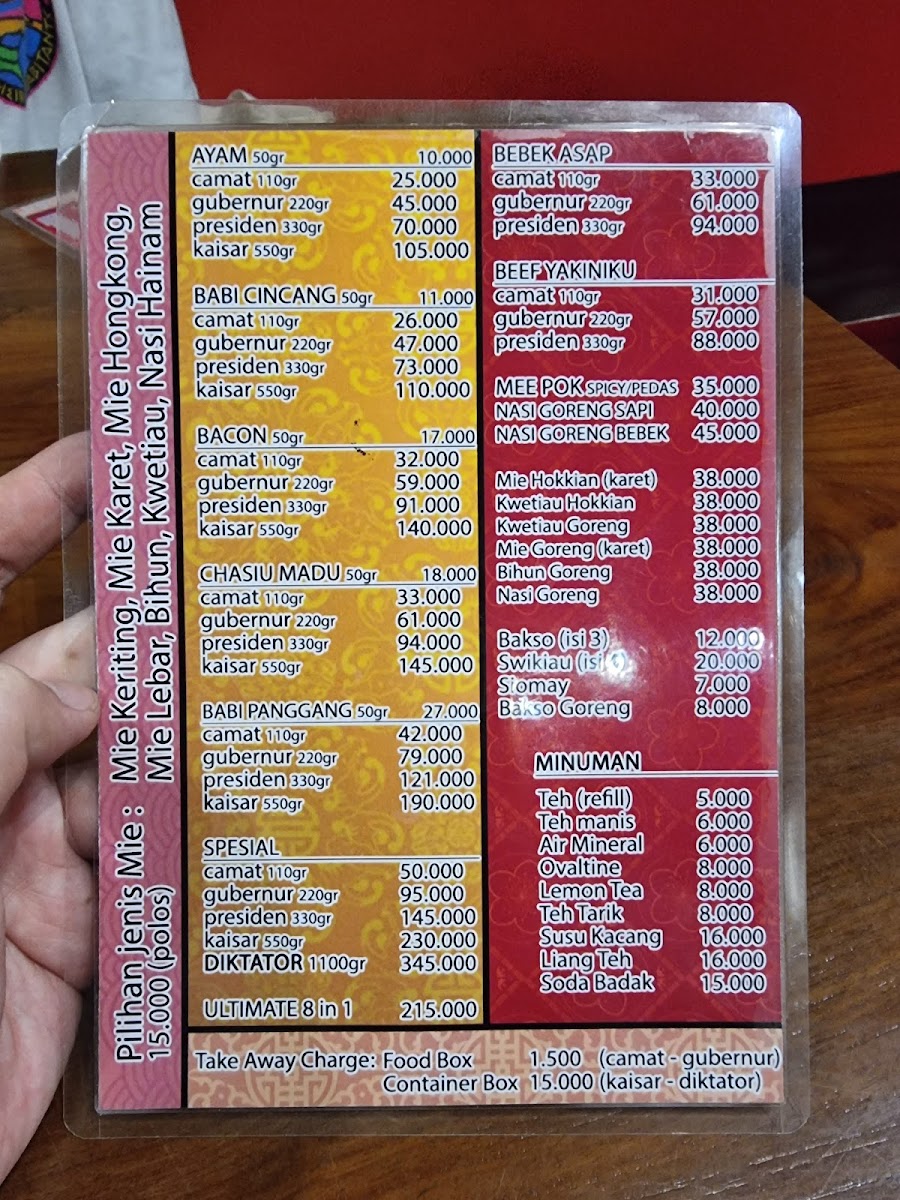 Pilihan jenis Mie : Mie Keriting, Mie Karet, Mie Hongkong,
15.000 (polos) Mie Lebar, Bihun, Kwetiau, Nasi Hainam
AYAM 50gr 10.000
camat 110gr 25.000
gubernur 220gr 45.000
presiden 330gr 70.000
kaisar 550gr 105.000
BABI CINCANG 50gr 11.000
camat 110gr 26.000
gubernur 220gr 47.000
presiden 330gr 73.000
kaisar 550gr 110.000
BACON 50gr 17.000
camat 110gr 32.000
gubernur 220gr 59.000
presiden 330gr 91.000
kaisar 550gr 140.000
CHASIU MADU 50gr 18.000
camat 110gr 33.000
gubernur 220gr 61.000
presiden 330gr 94.000
kaisar 550gr 145.000
BABI PANGGANG 50gr 27.000
camat 110gr 42.000
gubernur 220gr 79.000
presiden 330gr 121.000
kaisar 550gr 190.000
SPESIAL
camat 110gr 50.000
gubernur 220gr 95.000
presiden 330gr 145.000
kaisar 550gr 230.000
DIKTATOR 1100gr 345.000
ULTIMATE 8 in 1 215.000
BEBEK ASAP
camat 110gr 33.000
gubernur 220gr 61.000
presiden 330gr 94.000
BEEF YAKINIKU
camat 110gr 31.000
gubernur 220gr 57.000
presiden 330gr 88.000
MEE POK SPICY/PEDAS 35.000
NASI GORENG SAPI 40.000
NASI GORENG BEBEK 45.000
Mie Hokkian (karet) 38.000
Kwetiau Hokkian 38.000
Kwetiau Goreng 38.000
Mie Goreng (karet) 38.000
Bihun Goreng 38.000
Nasi Goreng 38.000
Bakso (isi 3) 12.000
Swikiau (isi 20.000
Siomay 7.000
Bakso Goreng 8.000
MINUMAN
Teh (refill) 5.000
Teh manis 6.000
Air Mineral 6.000
Ovaltine 8.000
Lemon Tea 8.000
Teh Tarik 8.000
Susu Kacang 16.000
Liang Teh 16.000
Soda Badak 15.000
Take Away Charge: Food Box 1.500 (camat - gubernur)
Container Box 15.000 (kaisar - diktator)